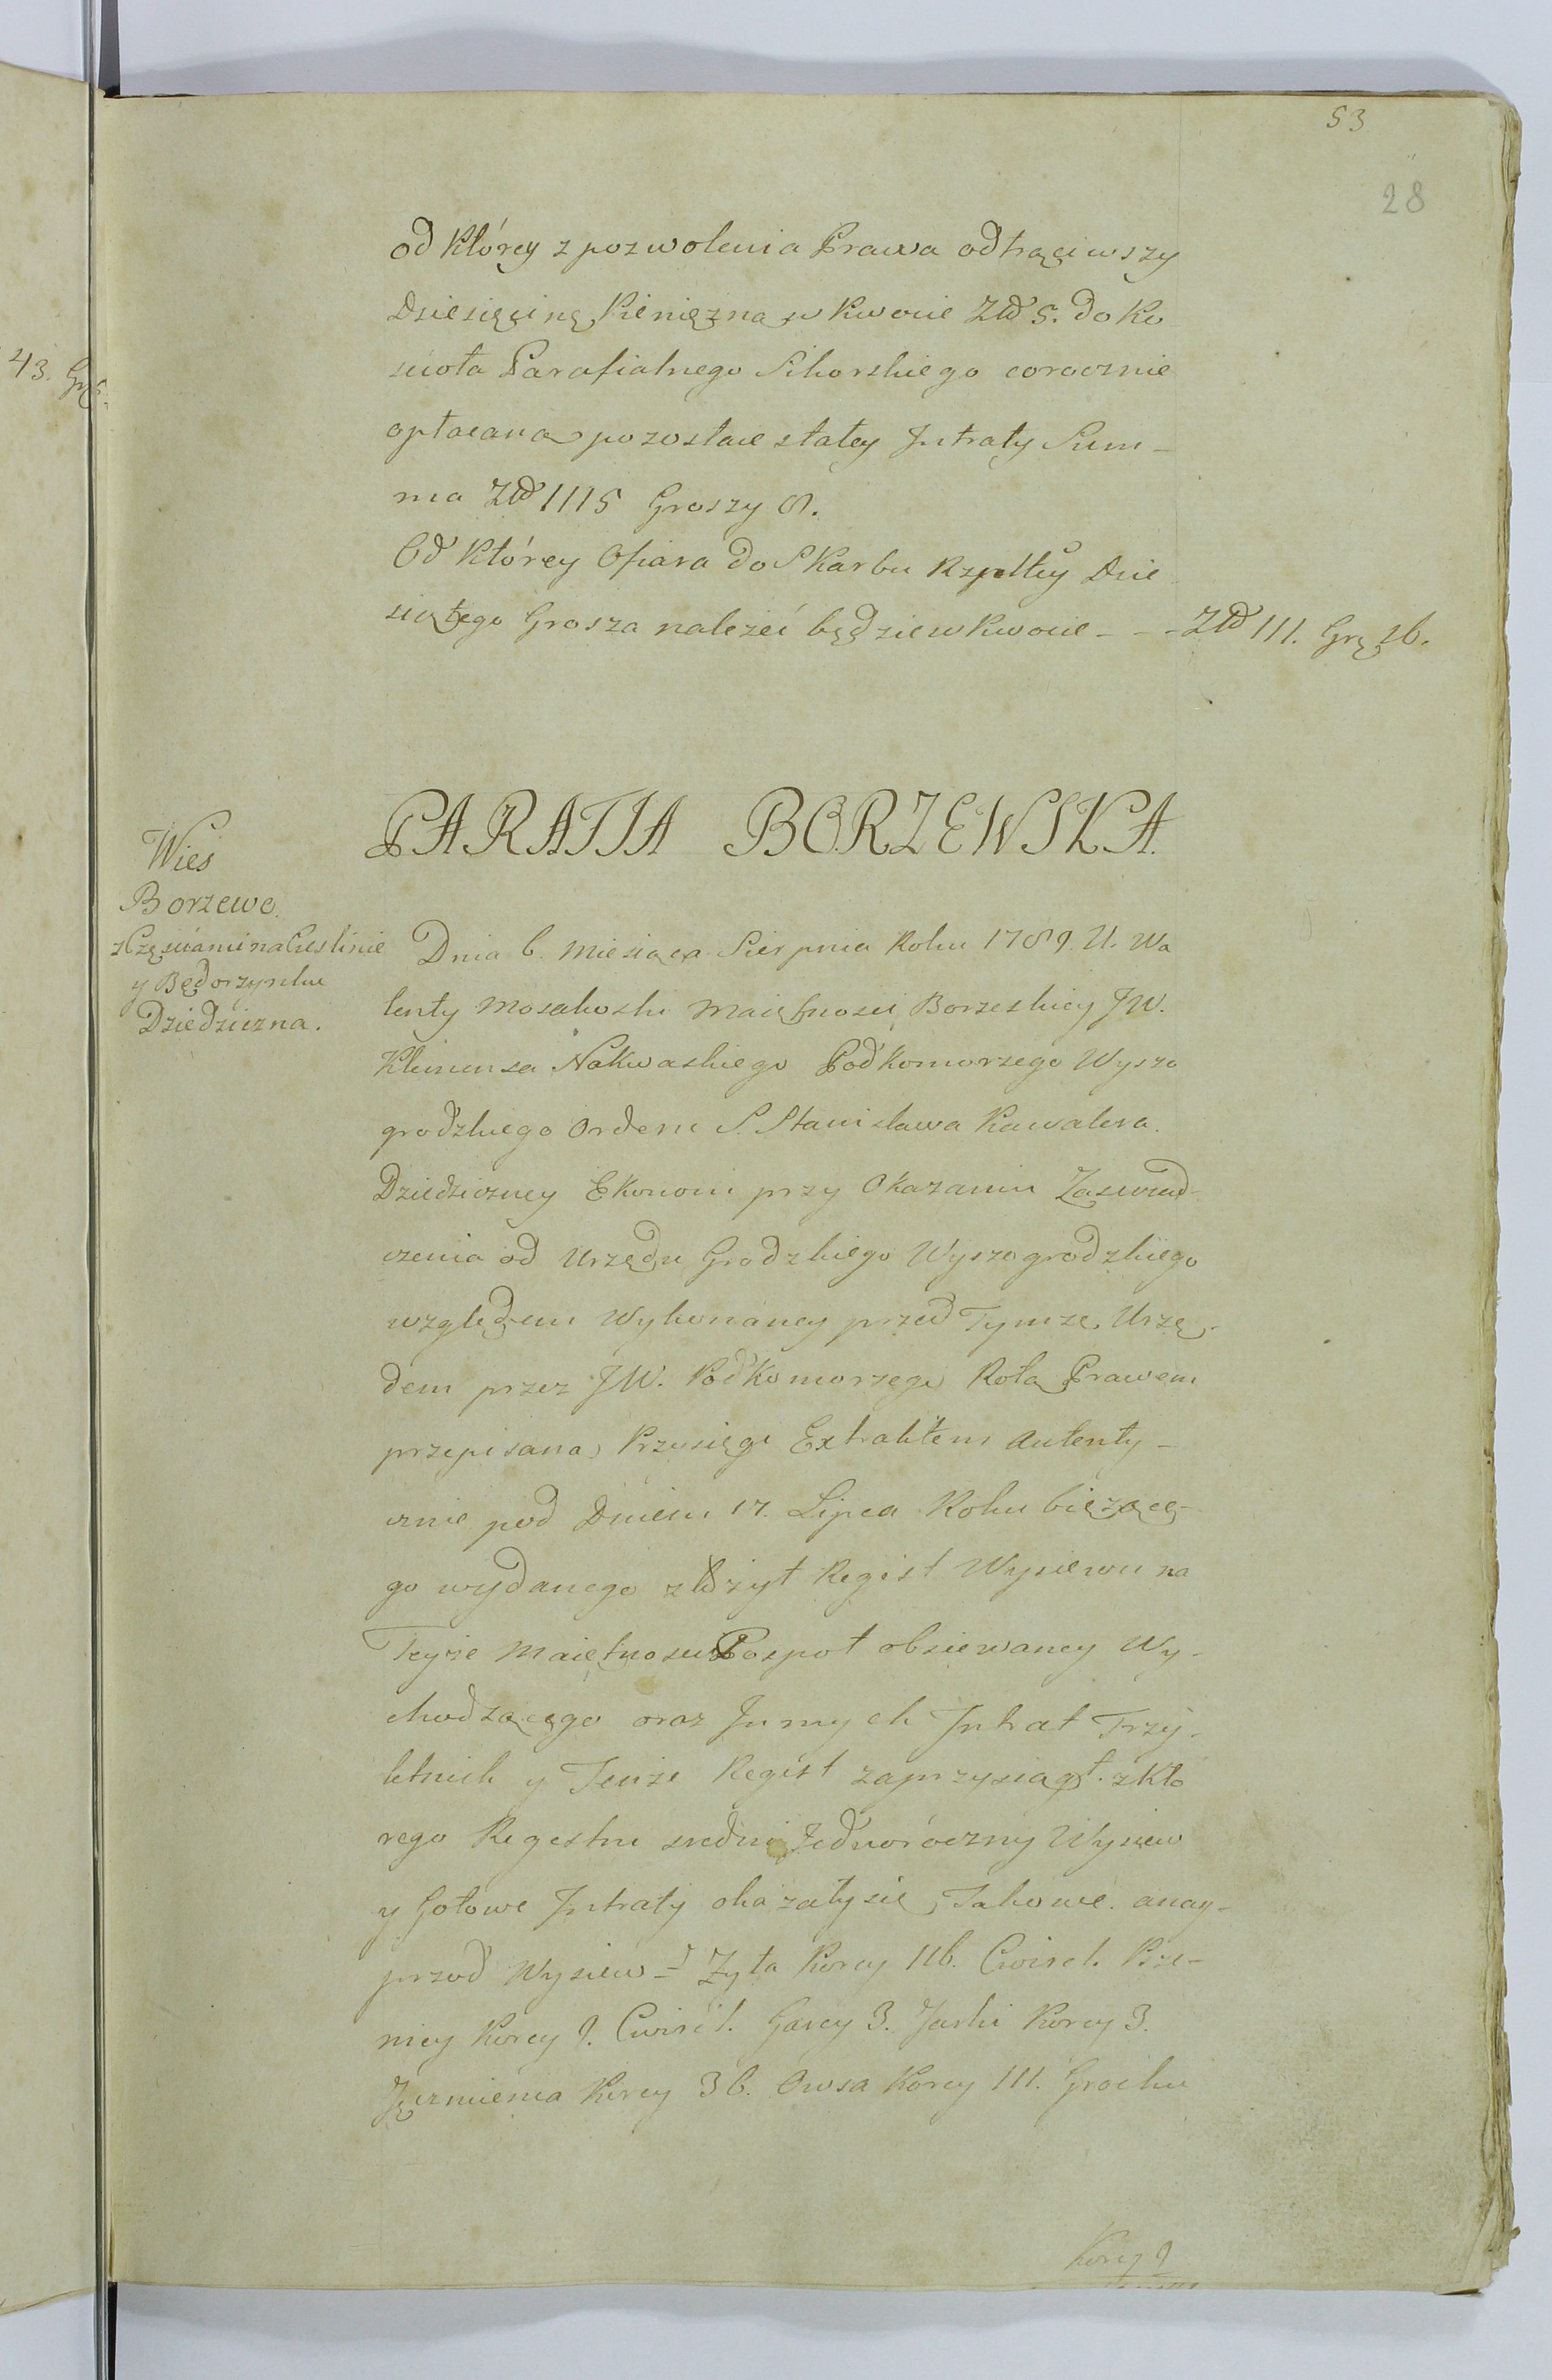 53
28
43. Gr
od którey z pozwolenia Prawa odtrąciwszy
Dziesięcinę Pieniężną w kwocie Złđ 5. do Ko
scioła Parafialnego Sikorskiego corocznie
opłacaną pozostaie stałey Jntraty Sum-
ma Złđ 1115 Groszy 8.
Od którey Ofiara do Skarbu Rzpltey Dzie
siątego Grosza należeć będzie w kwocie - - - Złđ 111. Gr 16.
PARAFIA BORZEWSKA.
Wies
Borzewo.
z Częściami na Cieslinie
y Będorzynku
Dziedziczna.
Dnia 6. Miesiąca Sierpnia Roku 1789. U. Wa
lenty Mosakoski Maiętnosci Borzeskiey JW.
Klimensa Nakwaskiego Podkomorzego Wyszo
grodzkiego Orderu S. Stanisława Kawalera.
Dziedziczney Ekonom przy Okazaniu Zaswiad-
czenia od Urzędu Grodzkiego Wyszogrodzkiego
względem Wykonaney przed Tymze Urzę-
dem przez JW. Podkomorzego Rotą Prawem
przepisaną Przysięgi Extraktem Autenty-
cznie pod Dniem 17. Lipca Roku bieżące-
go wydanego złożył Regist Wysiewu na
Teyże Maiętnosci Pospoł obsiewaney Wy-
chodzącego oraz Jnnych Jntrat Trzy-
letnich y Tenże Regist zaprzysiągł. z Kto
rego Regestru sredni Jednoroczny Wysiew
y Gotowe Jntraty okazały się Takowe. a nay-
przod Wysiew = Żyta Korcy 116. Cwierć 1. Psze-
nicy Korcy 9. Cwierć 1. Garcy 3. Jarki Korcy 3.
Jęczmienia Korcy 36. Owsa Korcy 111. Grochu
Korcy 9